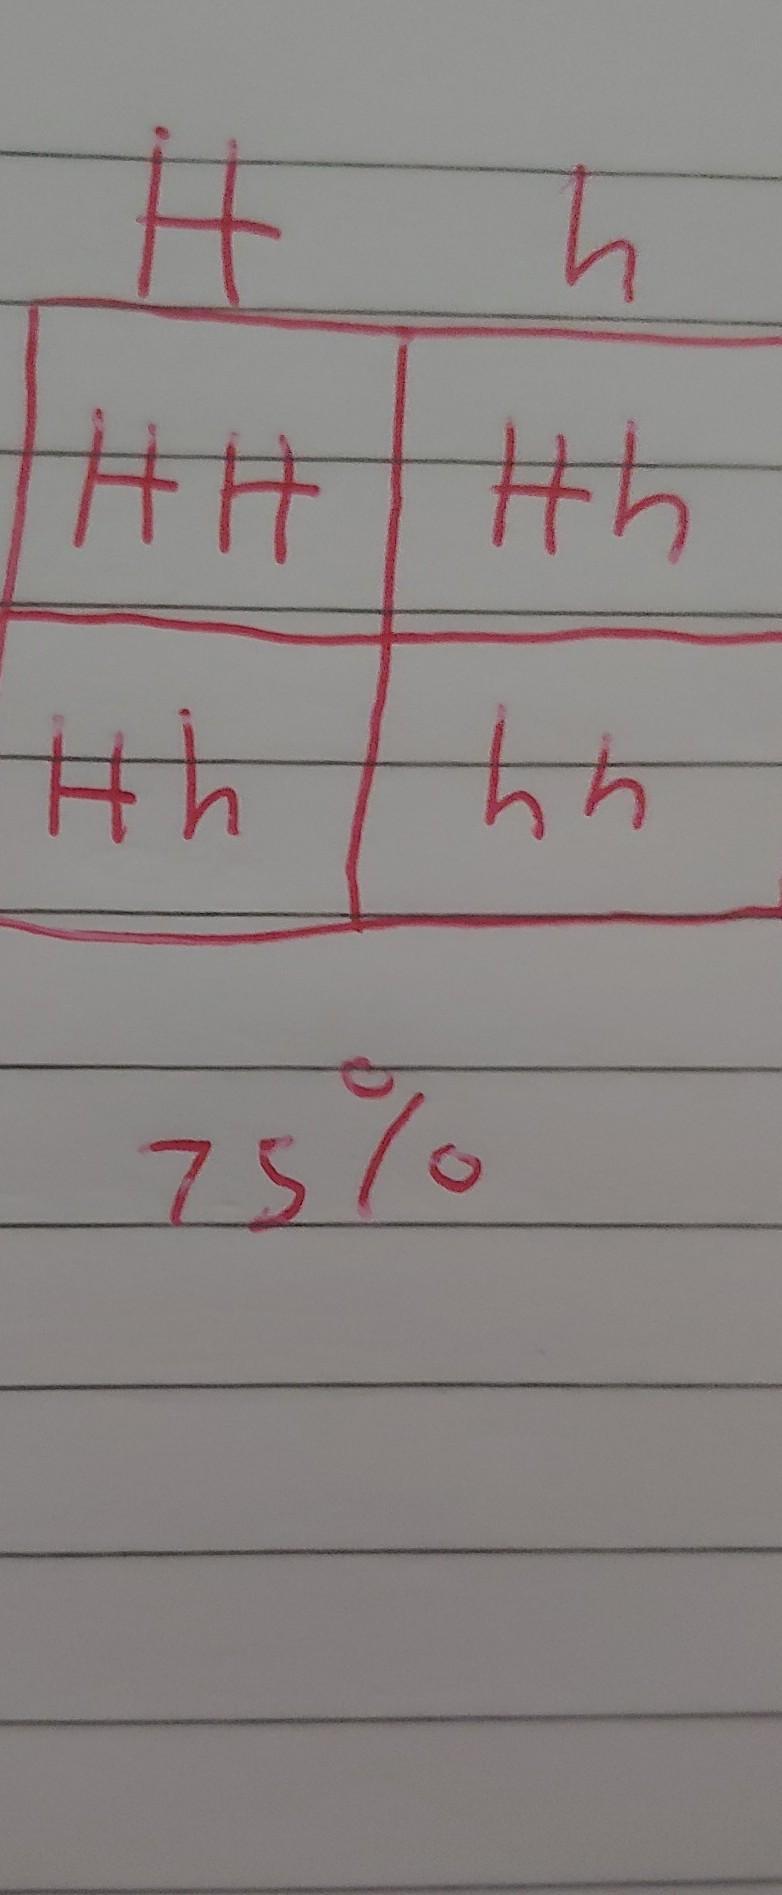 H h
HH Hh
Hh hh
75%